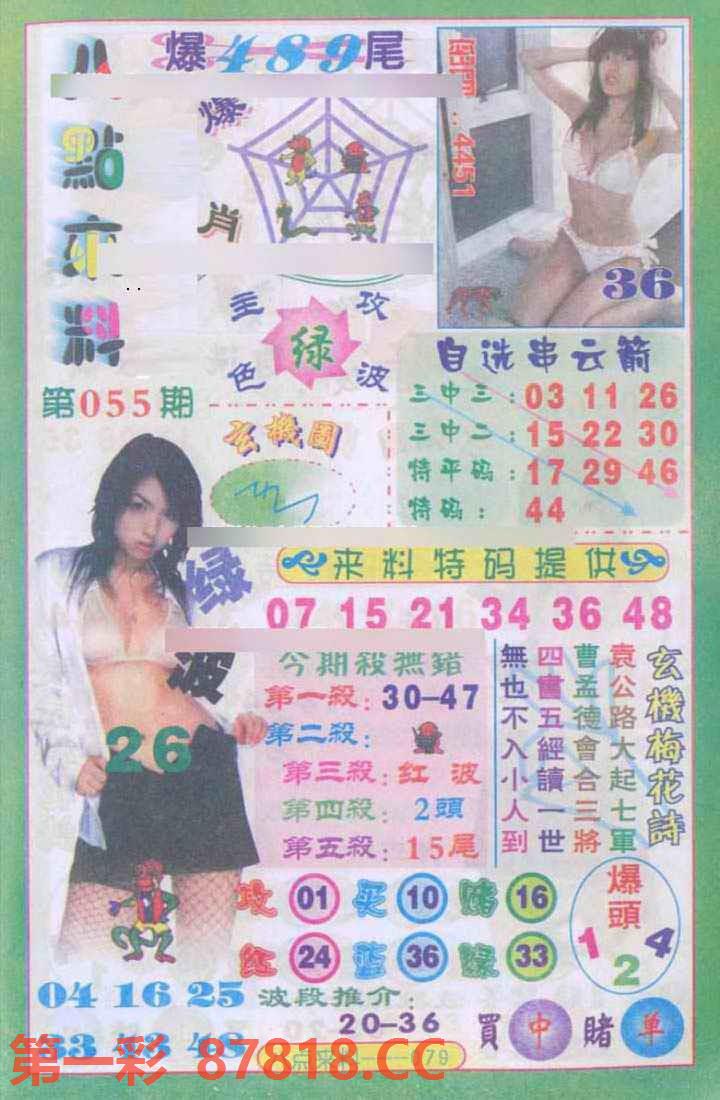 八點來料
爆489尾
爆肖
主攻色波
绿
36
第055期
玄機圖
自选串云箭
三中三:03 11 26
三中二:15 22 30
特平码:17 29 46
特码:44
来料特码提供
07 15 21 34 36 48
绿波
26
今期殺無錯
第一殺:30-47
第二殺:
第三殺:红波
第四殺:2頭
第五殺:15尾
玄機梅花詩
袁公路大起七軍
曹孟德會合三將
四書五經讀一世
無也不入小人到
攻 01 买 10 赌 16
红 24 蓝 36 绿 33
爆頭
1 2 4
04 16 25
波段推介:
20-36
買中賭单
第一彩 87818.CC